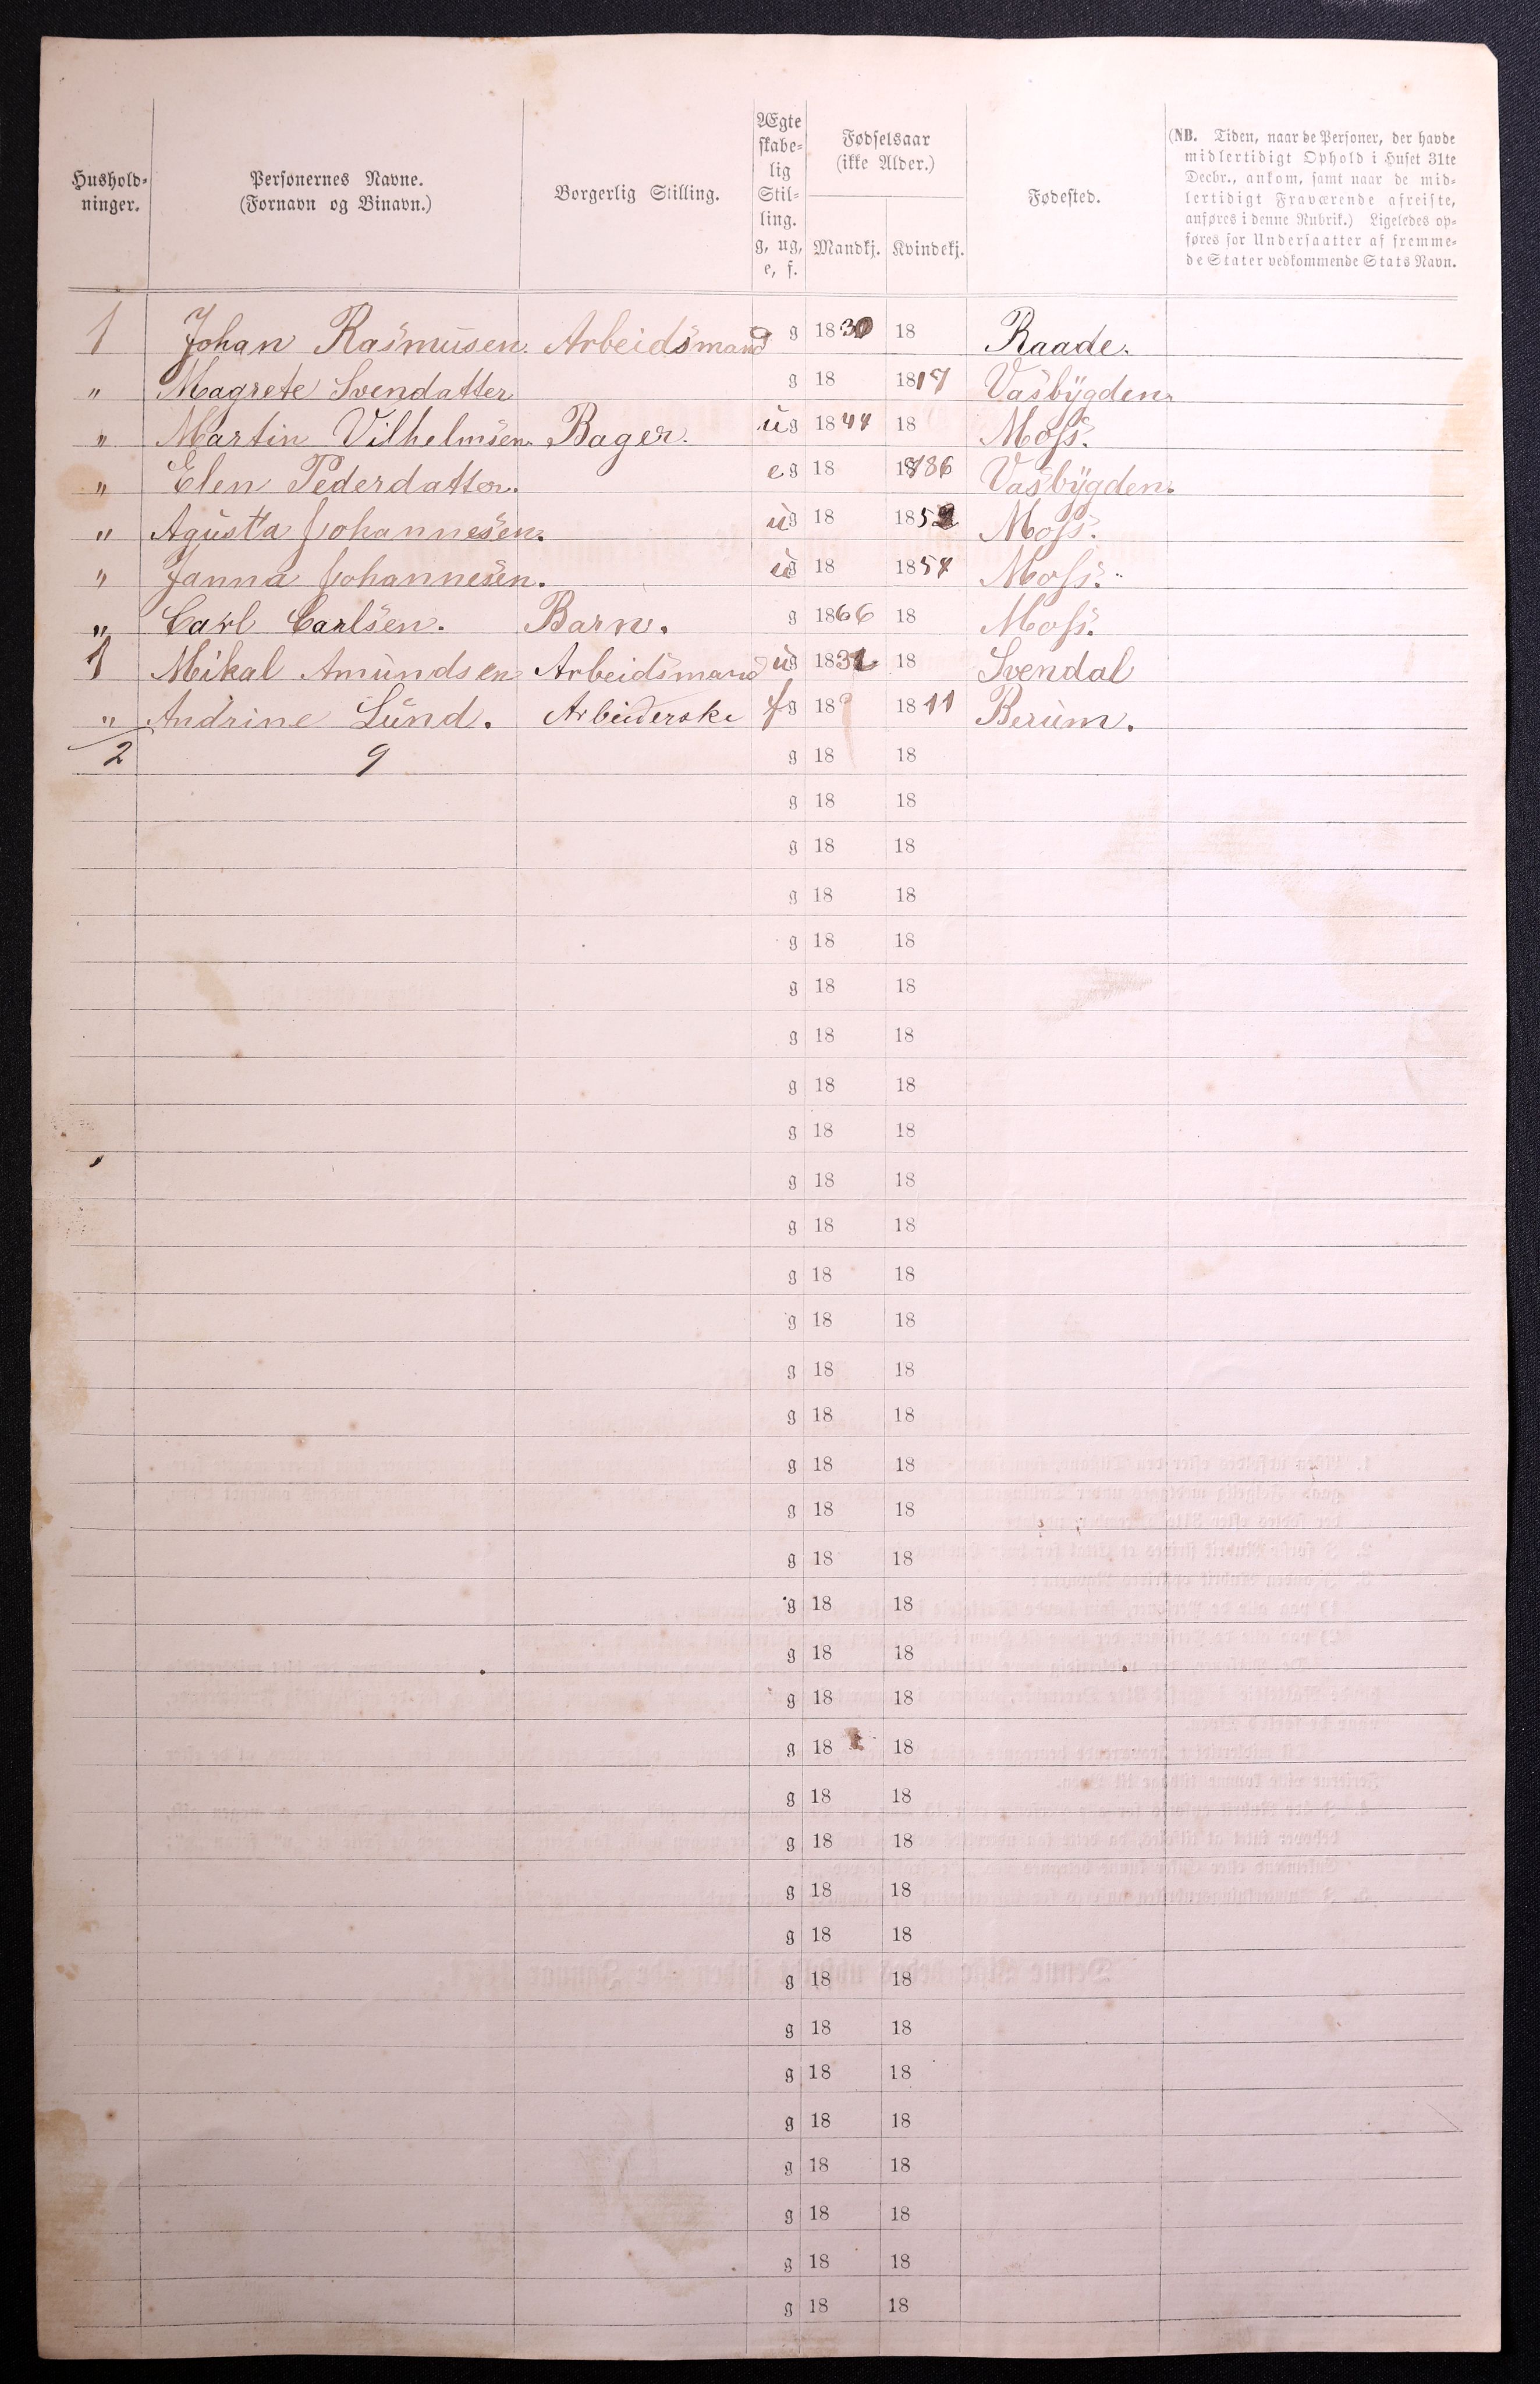 Hushold-
ninger.
Personernes Navne.
(Fornavn og Binavn.)
Borgerlig Stilling.
Ægte
skabe-
lig
Stil-
ling.
g, ug,
e, f.
Fødselsaar
(ikke Alder.)
Mandkj. Kvindekj.
Fødested.
(NB. Tiden, naar de Personer, der havde
midlertidigt Ophold i Huset 31te
Decbr., ankom, samt naar de mid-
lertidigt Fraværende afreiste,
anføres i denne Rubrik.) Ligeledes op-
føres for Undersaatter af fremme-
de Stater vedkommende Stats Navn.
1 Johan Rasmusen. Arbeidsmand g 1830 18 Raade.
" Magrete Svendatter g 18 1817 Vasbygden.
" Martin Vilhelmsen. Bager. ug 1844 18 Moss.
" Elen Pederdatter. eg 18 1786 Vasbygden.
" Agusta Johannesen. ug 18 1852 Moss.
" Janna Johannesen. ug 18 1854 Moss.
" Carl Carlsen. Barn. g 1866 18 Moss.
1 Mikal Amundsen Arbeidsmand ug 1832 18 Svendal
" Andrine Lund. Arbeiderske fg 18 1811 Berum.
2 9 g 18 18
g 18 18
g 18 18
g 18 18
g 18 18
g 18 18
g 18 18
g 18 18
g 18 18
g 18 18
g 18 18
g 18 18
g 18 18
g 18 18
g 18 18
g 18 18
g 18 18
g 18 18
g 18 18
g 18 18
g 18 18
g 18 18
g 18 18
g 18 18
g 18 18
g 18 18
g 18 18
g 18 18
g 18 18
g 18 18
g 18 18
g 18 18
g 18 18
g 18 18